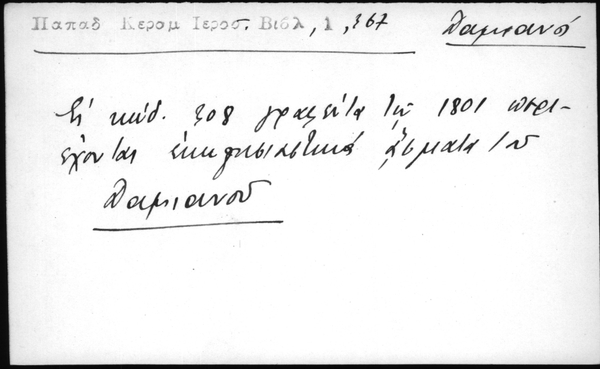 Παπαδ Κερομ Ιεροσ. Βιβλ, 1, 367 Δαμιανό
Εἰ κώδ. 308 γραφέντα τῷ 1801 περι-
έχονται ἐκκλησιαστικά ᾄσματα τοῦ
Δαμιανοῦ